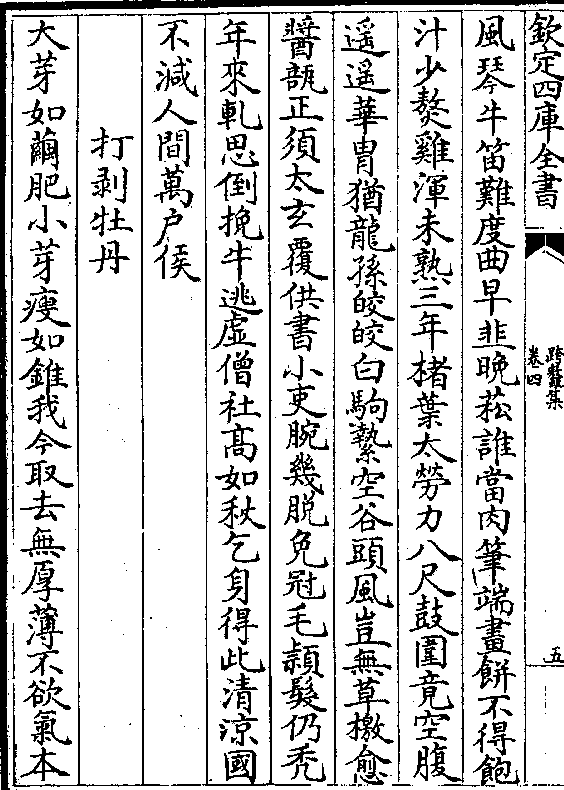 欽定四庫全書
跨鼇集
卷四
五
風琴牛笛難度曲早韭晚菘誰當肉筆端畫餅不得飽
汁少熬雞渾未熟三年楮葉太勞力八尺鼓圍竟空腹
遥遥華胄猶龍孫皎皎白駒縶空谷頭風豈無草檄愈
醬瓿正須太玄覆供書小吏腕幾脱免冠毛頴髮仍禿
年來軋思倒挽牛逃虚僧社髙如秋乞身得此清凉國
不減人間萬户侯
打剥牡丹
大芽如繭肥小芽瘦如錐我今取去無厚薄不欲氣本